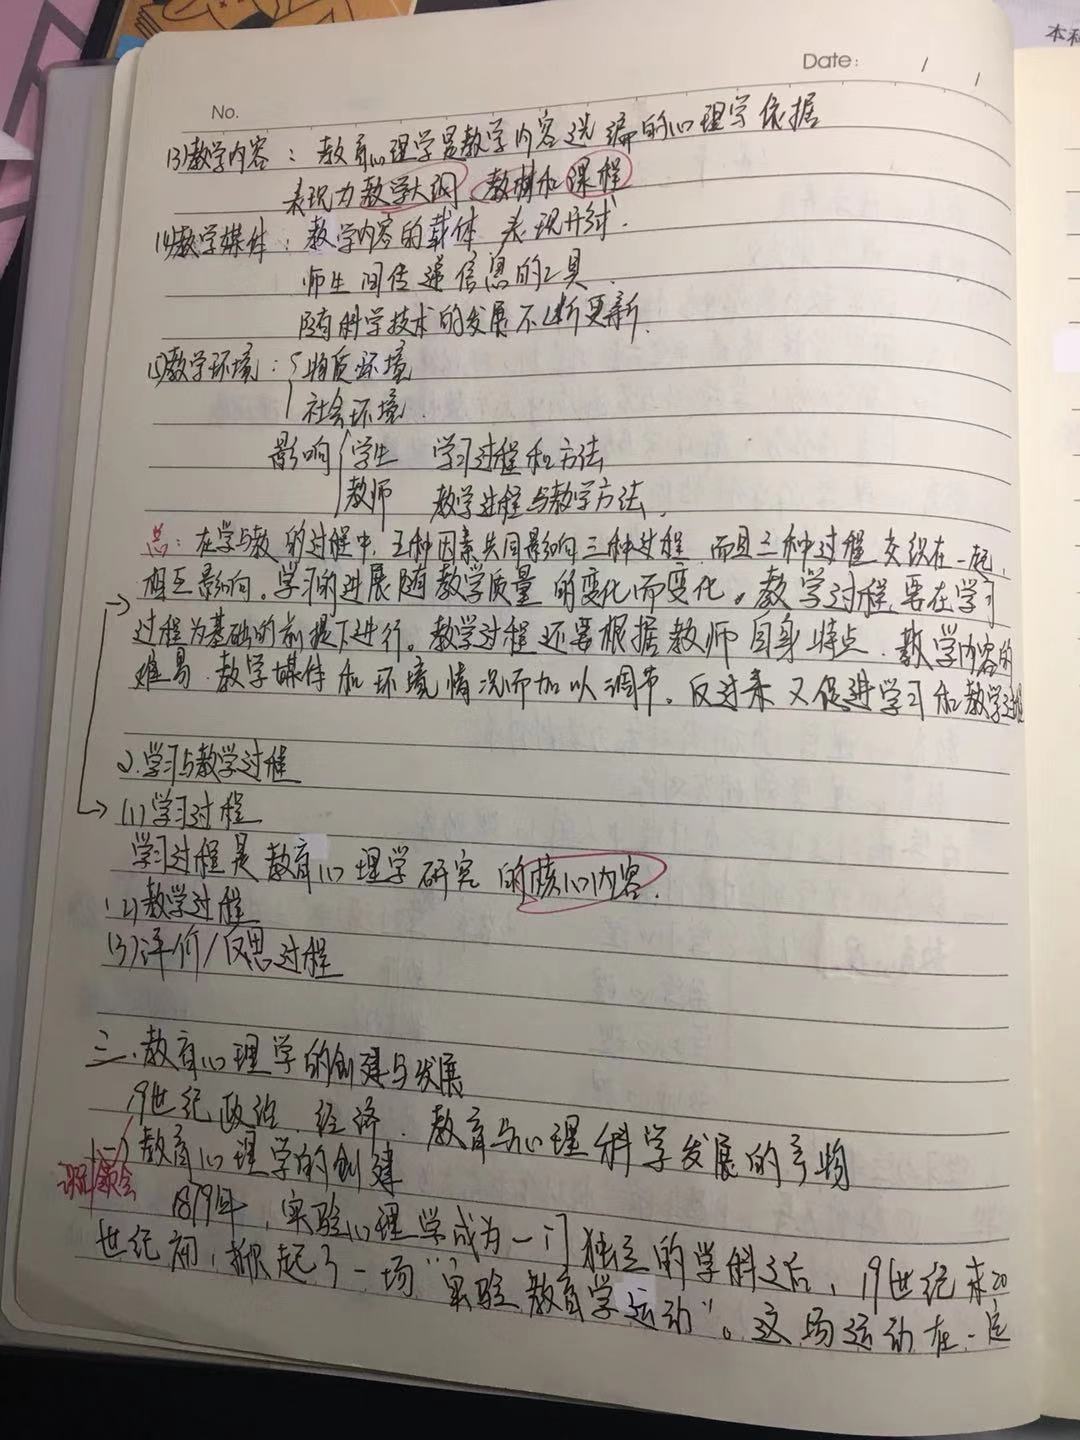 本科
Date: / /
No.
(3)教学内容：教育心理学是教学内容选编的心理学依据
表现为教学大纲、教材和课程
(4)教学媒体：教学内容的载体 表现形式.
师生间传递信息的工具.
随科学技术的发展不断更新.
(5)教学环境：物质环境
社会环境.
影响 学生 学习过程和方法
教师 教学过程与教学方法.
总：在学与教的过程中，五种因素共同影响三种过程，而且三种过程交织在一起，
相互影响。学习的进展随教学质量的变化而变化。教学过程要在学习
过程为基础的前提下进行。教学过程还要根据教师自身特点、教学内容的
难易、教学媒体和环境情况而加以调节。反过来又促进学习和教学过程
2.学习与教学过程
(1)学习过程
学习过程是教育心理学研究的核心内容.
(2)教学过程
(3)评价/反思过程
三、教育心理学的创建与发展
19世纪政治、经济、教育与心理科学发展的产物
(一)教育心理学的创建
识别领会
1879年，实验心理学成为一门独立的学科之后，19世纪末20
世纪初，掀起了一场“实验教育学运动”。这场运动在一定